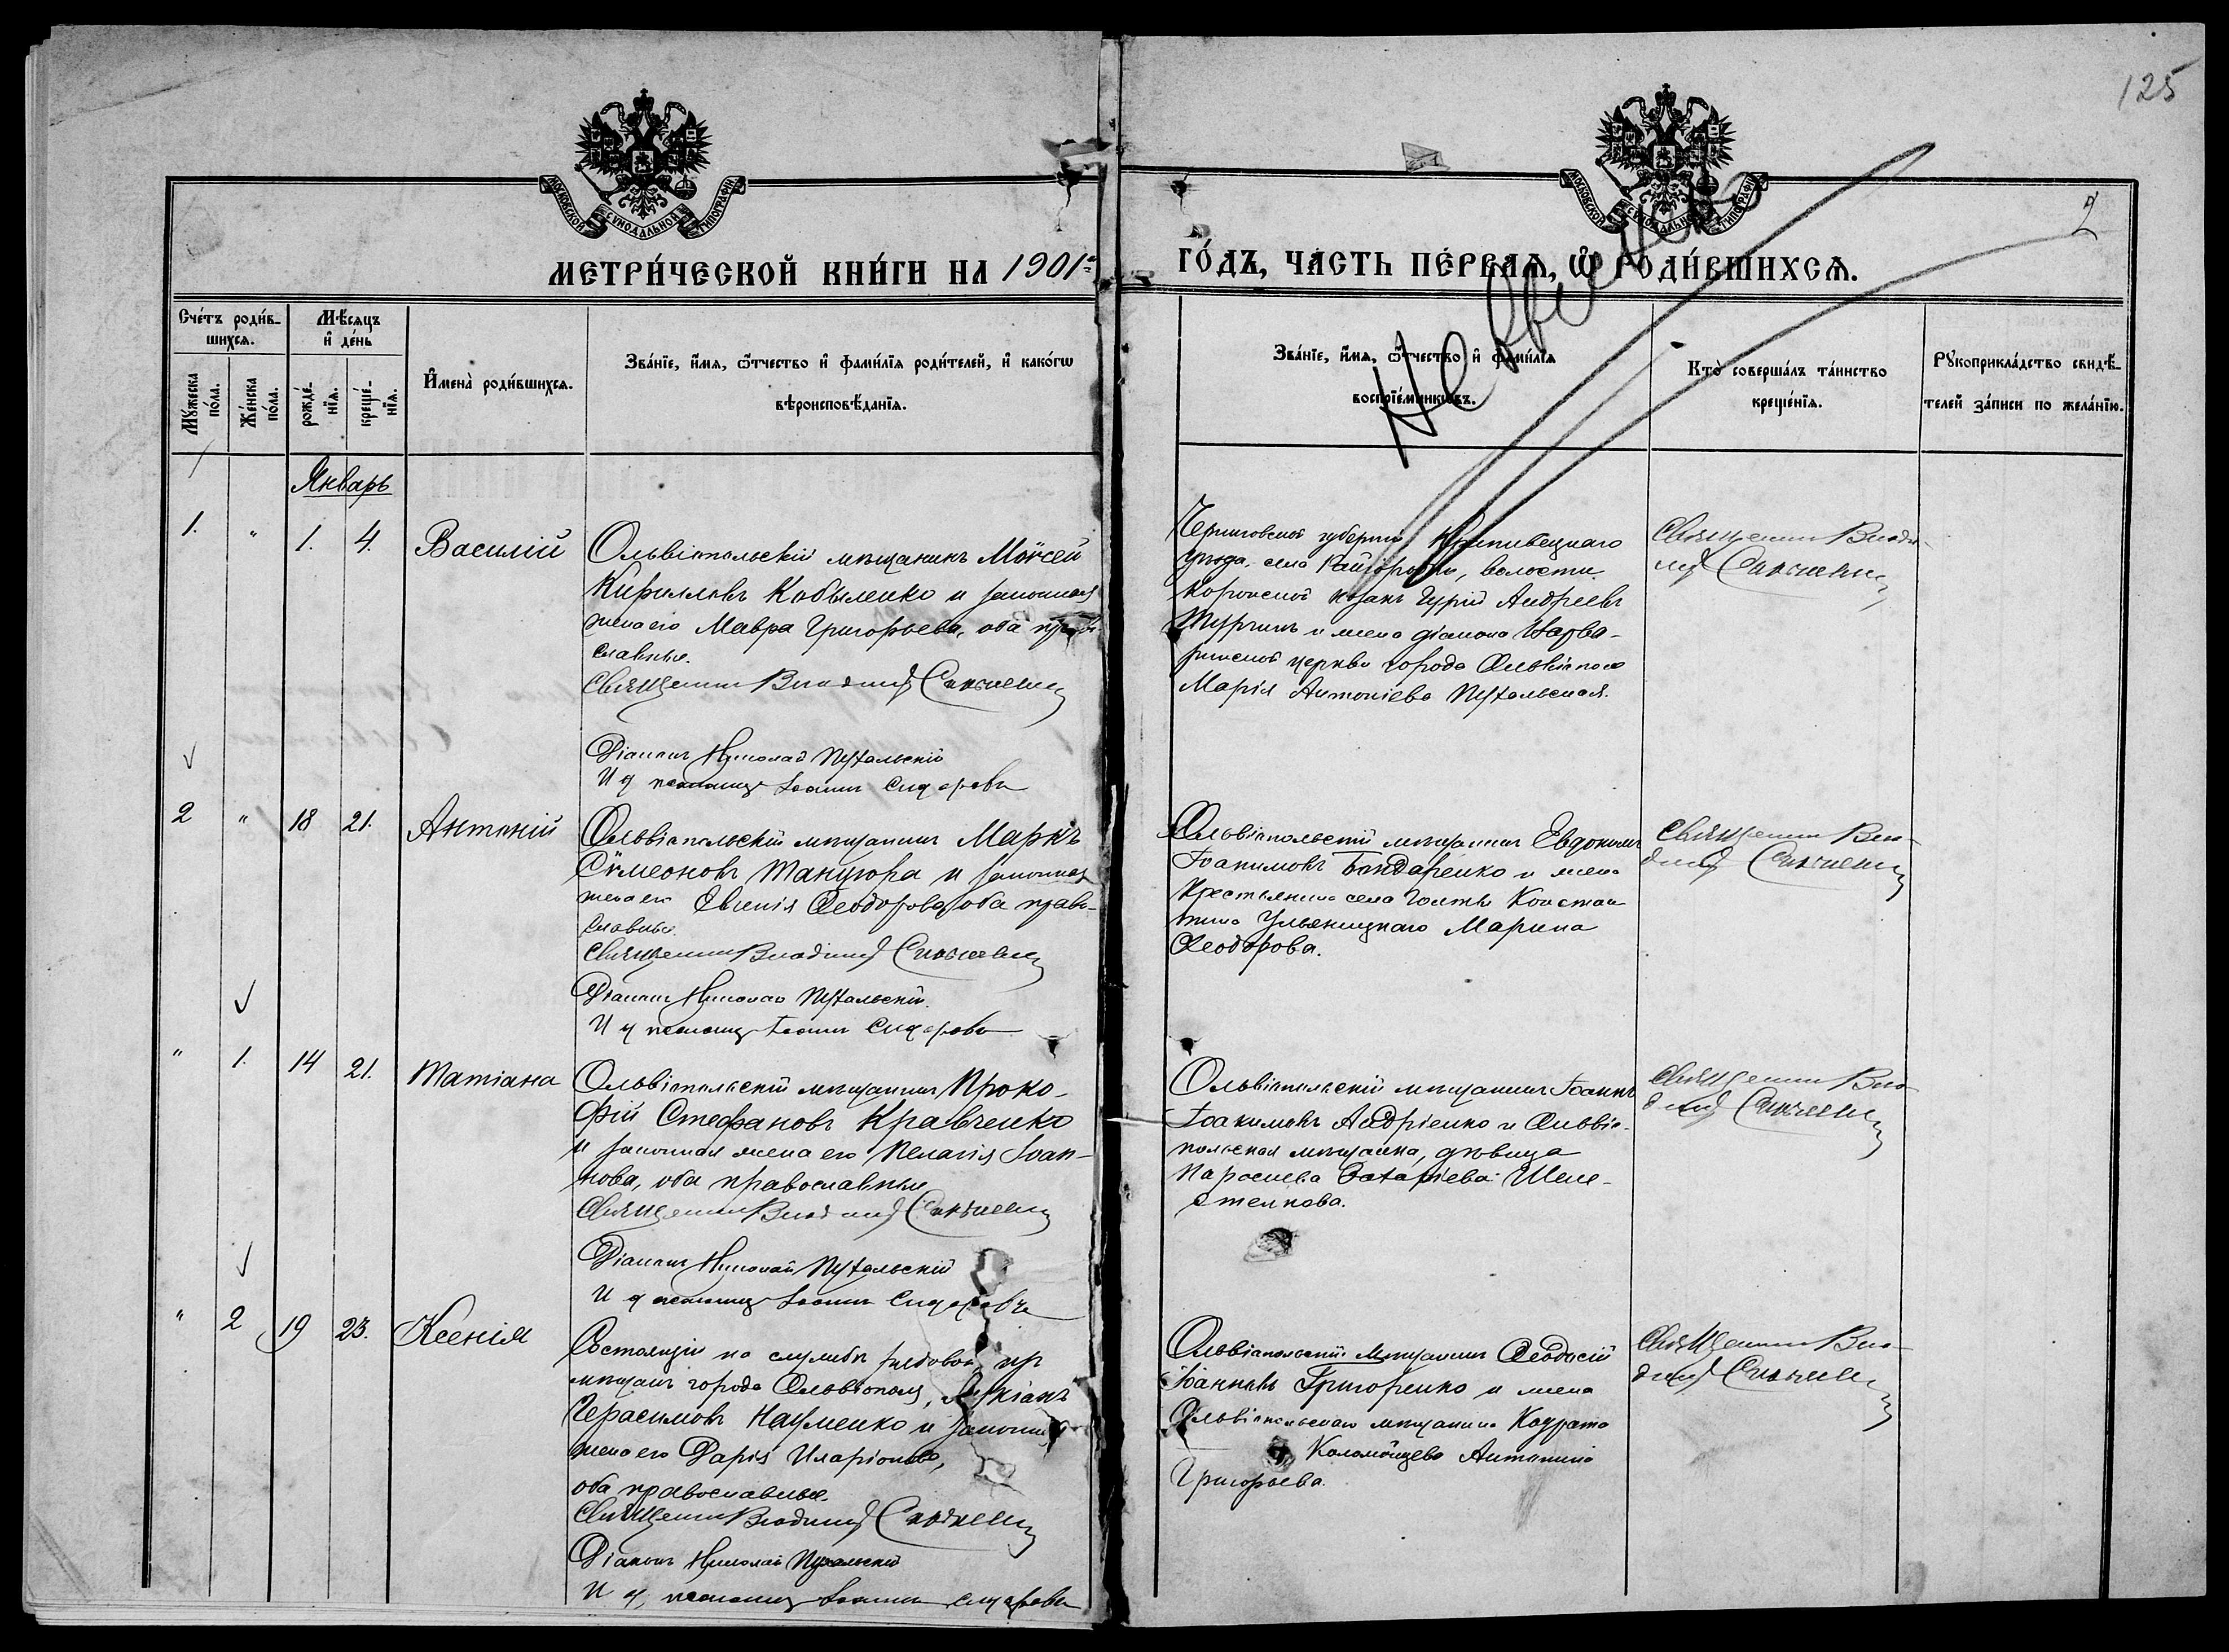 125
2
МОСКОВСКОЙ СѴНОДАЛЬНОЙ ТИПОГРАФІИ
МОСКОВСКОЙ СѴНОДАЛЬНОЙ ТИПОГРАФІИ
МЕТРИ́ЧЕСКОЙ КНИ́ГИ НА 1901 ГО́ДЪ, ЧАСТЬ ПЕ́РВАЯ, Ѡ РОДИ́ВШИХСѦ.
Сче́тъ роди́в-
шихсѧ.
Мѣ́сѧцъ
и҆ де́нь
Мꙋ́жеска
по́ла.
Же́нска
по́ла.
рожде́-
нїѧ.
креще́-
нїѧ.
И҆мена̀ роди́вшихсѧ.
Зва́нїе, и҆́мѧ, ѻ҆́тчество и҆ фами́лїѧ роди́телей, и҆ како́гѡ
вѣроисповѣ́данїѧ.
Зва́нїе, и҆́мѧ, ѻ҆́тчество и҆ фами́лїѧ
воспрїе́мникѡвъ.
Кто̀ соверша́лъ та́инство
креще́нїѧ.
Рꙋкоприкла́дство свидѣ́-
телей за́писи по жела́нїю.
Январь
1. " 1. 4. Василій
Ольвіопольскій мѣщанинъ Моѵсей
Кирилловъ Кобыленко и законная
жена его Мавра Григорьева, оба право-
славные.
Священникъ Владимір
Діаконъ Николай
И д псаломщ Іоаннъ Сидоровъ
Черниговской губерніи
уѣзда, села, волости
козакъ Гурій Андреевъ
и жена діакона Варва-
ринской церкви города Ольвіополя
Марія Антоніева
Священникъ Влади-
мір
2 " 18 21. Антоній
Ольвіопольскій мѣщанинъ Маркъ
Сѵмеоновъ Танцюра и законная
жена его Евгенія Ѳеодорова, оба право-
славные.
Священникъ Владимір
Діаконъ Николай
И д псаломщ Іоаннъ Сидоровъ
Ольвіопольскій мѣщанинъ Евдокимъ
Іоакимовъ Бондаренко и жена
крестьянина села Голты Констан-
тина Ульяницкаго Марина
Ѳеодорова.
Священникъ Вла-
димір
" 1. 14 21. Татіана
Ольвіопольскій мѣщанинъ Проко-
фій Стефановъ Кравченко
и законная жена его Пелагія Іоан-
нова, оба православные
Священникъ Владимір
Діаконъ Николай
И д псаломщ Іоаннъ Сидоровъ
Ольвіопольскій мѣщанинъ Іоаннъ
Іоакимовъ Андріенко и Ольвіо-
польская мѣщанка, дѣвица
Параскева Захаріева Шеле-
стенкова.
Священникъ Вла-
димір
" 2 19 23. Ксенія
Состоящій на службѣ рядовой, изъ
мѣщанъ города Ольвіополя, Лукіанъ
Герасимовъ Науменко и законная
жена его Дарія Иларіонова,
оба православные.
Священникъ Владимір
Діаконъ Николай
И д псаломщ Іоаннъ Сидоровъ
Ольвіопольскій мѣщанинъ Ѳеодосій
Іоанновъ Григоренко и жена
Ольвіопольскаго мѣщанина Кодрата
Коломойцева Антонина
Григорьева.
Священникъ Вла-
димір